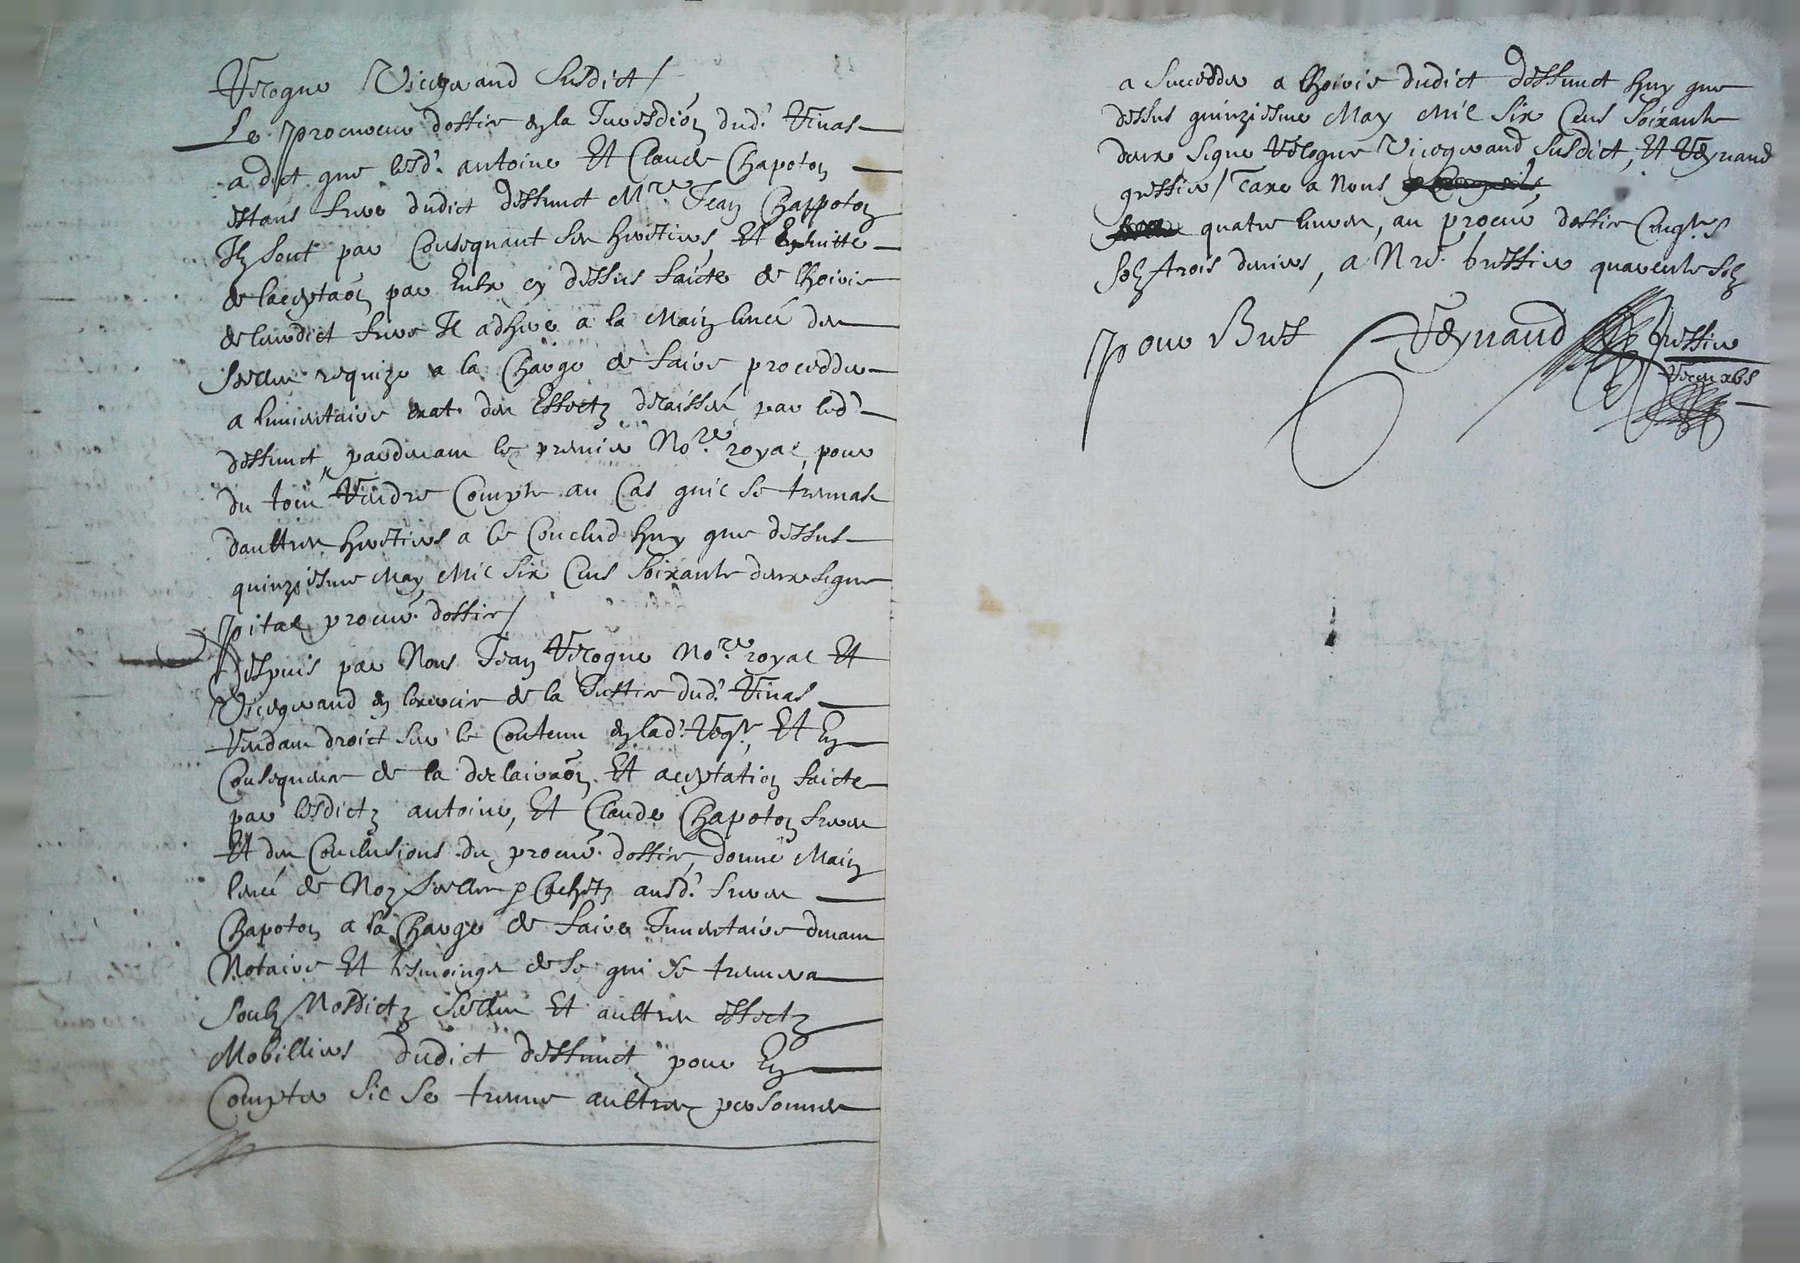 Verogne Vicegerand susdict /
Le procureur dossice en la Jurisdiōn dud.t Vinas
a dict que lesd.t antoine Et Claude Chapoton
estans frere dudict deffunct M.re Jean Chappoton
Ilz sont par Consequant ses heritiers Et En suitte
de laceptaōn par Eulx cy dessus faicte de lhoirie
de leurdict frere Il adhere a la Main levée des
scelles requize a la Charge de faire procedder
a linventaire exat des Effectz delaissés par led.t
deffunct pardevant le premier No.re royal, pour
du tout Rendre Compte au Cas quil se treuvast
daultres heritiers a Ce Conclud huy que dessus
quinziesme May Mil Six Cens Soixante deux signe
Pital procur. dossice /
Despuis par Nous Jean Verogne No.re royal Et
Vicegerand en lexercice de la Justice dud.t Vinas
Rendant droict sur le Contenu en lad.t Req.te, Et En
Consequence de la declairaōn Et aceptation faicte
par lesdictz antoine, Et Claude Chapoton freres
Et des Conclusions du procur. dossice, donné Main
levée de Noz scelles & Cachetz ausd.t freres
Chapoton a la Charge de faire Inventaire devant
Notaire Et tesmoings de Se qui se treuvera
soubz Nosdictz scelles Et aultres effectz
Mobilliers dudict deffunct pour En
Compter sil se treuve aultres personnes
a succedder a lhoirie dudict deffunct huy que
dessus quinziesme May Mil Six Cens Soixante
deux signe Verogne Vicegerand susdict, Et Veynand
greffier / Taxe a Nous
quatre livres, au procur. dossice Vingt
solz trois deniers, a N.re greffier quarente solz
Pour Bref Veynand greffier